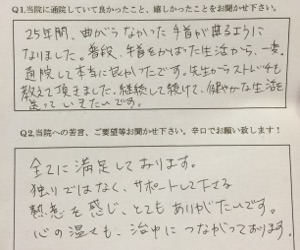 Q1.当院に通院していて良かったこと、嬉しかったことをお聞かせ下さい。
25年間、曲がらなかった手首が曲るように
なりました。普段、手首をかばった生活から、一変。
通院して本当に良かったです。先生からストレッチも
教えて頂きました。継続して続けて、健やかな生活を
送っていきたいです。
Q2.当院への苦言、ご要望等お聞かせ下さい。辛口でお願い致します!
全てに満足しております。
独りではなく、サポートして下さる
熱意を感じ、とてもありがたいです。
心の温くも、治中につながっております。